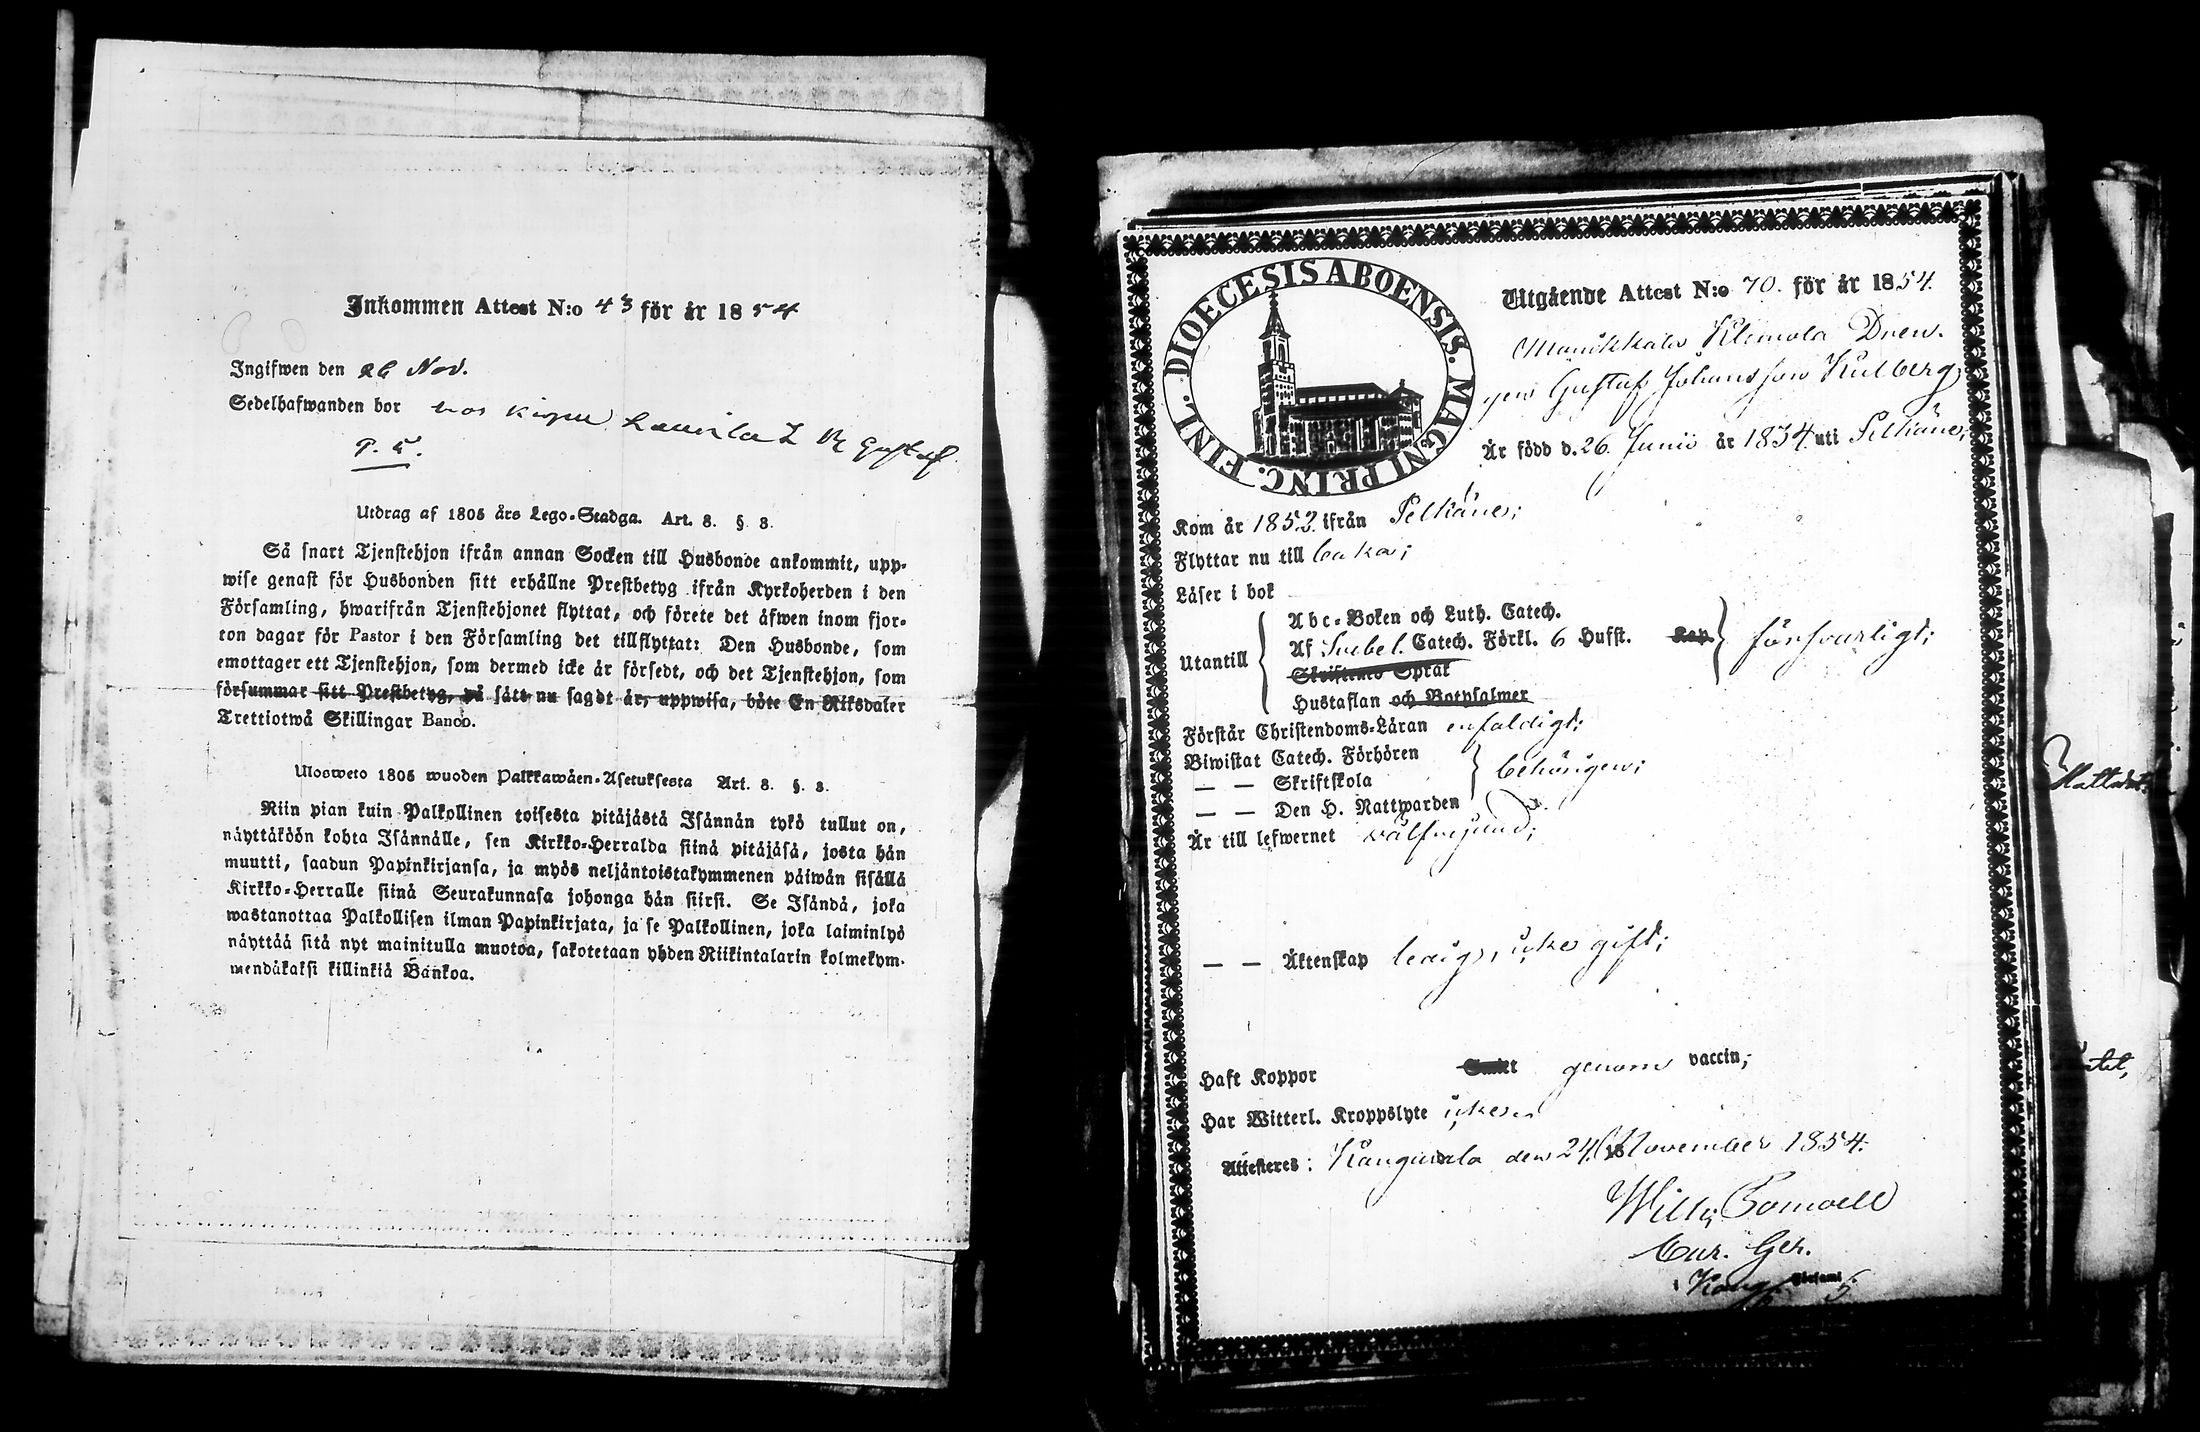 Inkommen Attest N:o 43 för år 1854
Ingifwen den 26 Nov.
Sedelhafwanden bor hos
Utdrag af 1805 års Lego-Stadga. Art. 8. § 3.
Så snart Tjenstehjon ifrån annan Socken till Husbonde ankommit, upp-
wise genast för Husbonden sitt erhållne Prestbetyg ifrån Kyrkoherden i den
Församling, hwarifrån Tjenstehjonet flyttat, och förete det äfwen inom fjor-
ton dagar för Pastor i den Församling det tillflyttat: Den Husbonde, som
emottager ett Tjenstehjon, som dermed icke är försedt, och det Tjenstehjon, som
försummar sitt Prestbetyg, på sätt nu sagdt är, uppwisa, böte En Riksdaler
Trettiotwå Skillingar Banco.
Ulosweto 1805 wuoden Palkkawäen-Asetuksesta Art. 8. §. 3.
Niin pian kuin Palkollinen toisesta pitäjästä Isännän tykö tullut on,
näyttäköön kohta Isännälle, sen Kirkko-Herralda siinä pitäjäsä, josta hän
muutti, saadun Papinkirjansa, ja myös neljäntoistakymmenen päiwän sisällä
Kirkko-Herralle siinä Seurakunnasa johonga hän siirsi. Se Isändä, joka
wastanottaa Palkollisen ilman Papinkirjata, ja se Palkollinen, joka laiminlyö
näyttää sitä nyt mainitulla muotoa, sakotetaan yhden Riikintalarin kolmekym-
mendäkaksi killinkiä Bankoa.
DIOECESIS ABOENSIS. MAGNI PRINC. FINL.
Utgående Attest N:o 70. för år 1854.
Dren-
gen Gustaf Johansson Kulberg
Är född d. 26. Junii år 1834. uti Pelkäne;
Kom år 1852. ifrån Pelkäne;
Flyttar nu till
Läser i bok
Utantill
Abc-Boken och Luth. Catech.
Af Svebel. Catech. Förkl. 6 Hufst. Kap.
Skriftenes Språk
Hustaflan och Botpsalmer
försvarligt;
Förstår Christendoms-Läran enfaldigt;
Biwistat Catech. Förhören
— — Skriftskola
— — Den H. Nattwarden
behörigen;
Är till lefwernet välfrejdad;
— — Äktenskap ledig, icke gift;
Haft Koppor genom vaccin;
Har Witterl. Kroppslyte icke
Attesteres: Kangasala den 24. November 1854.